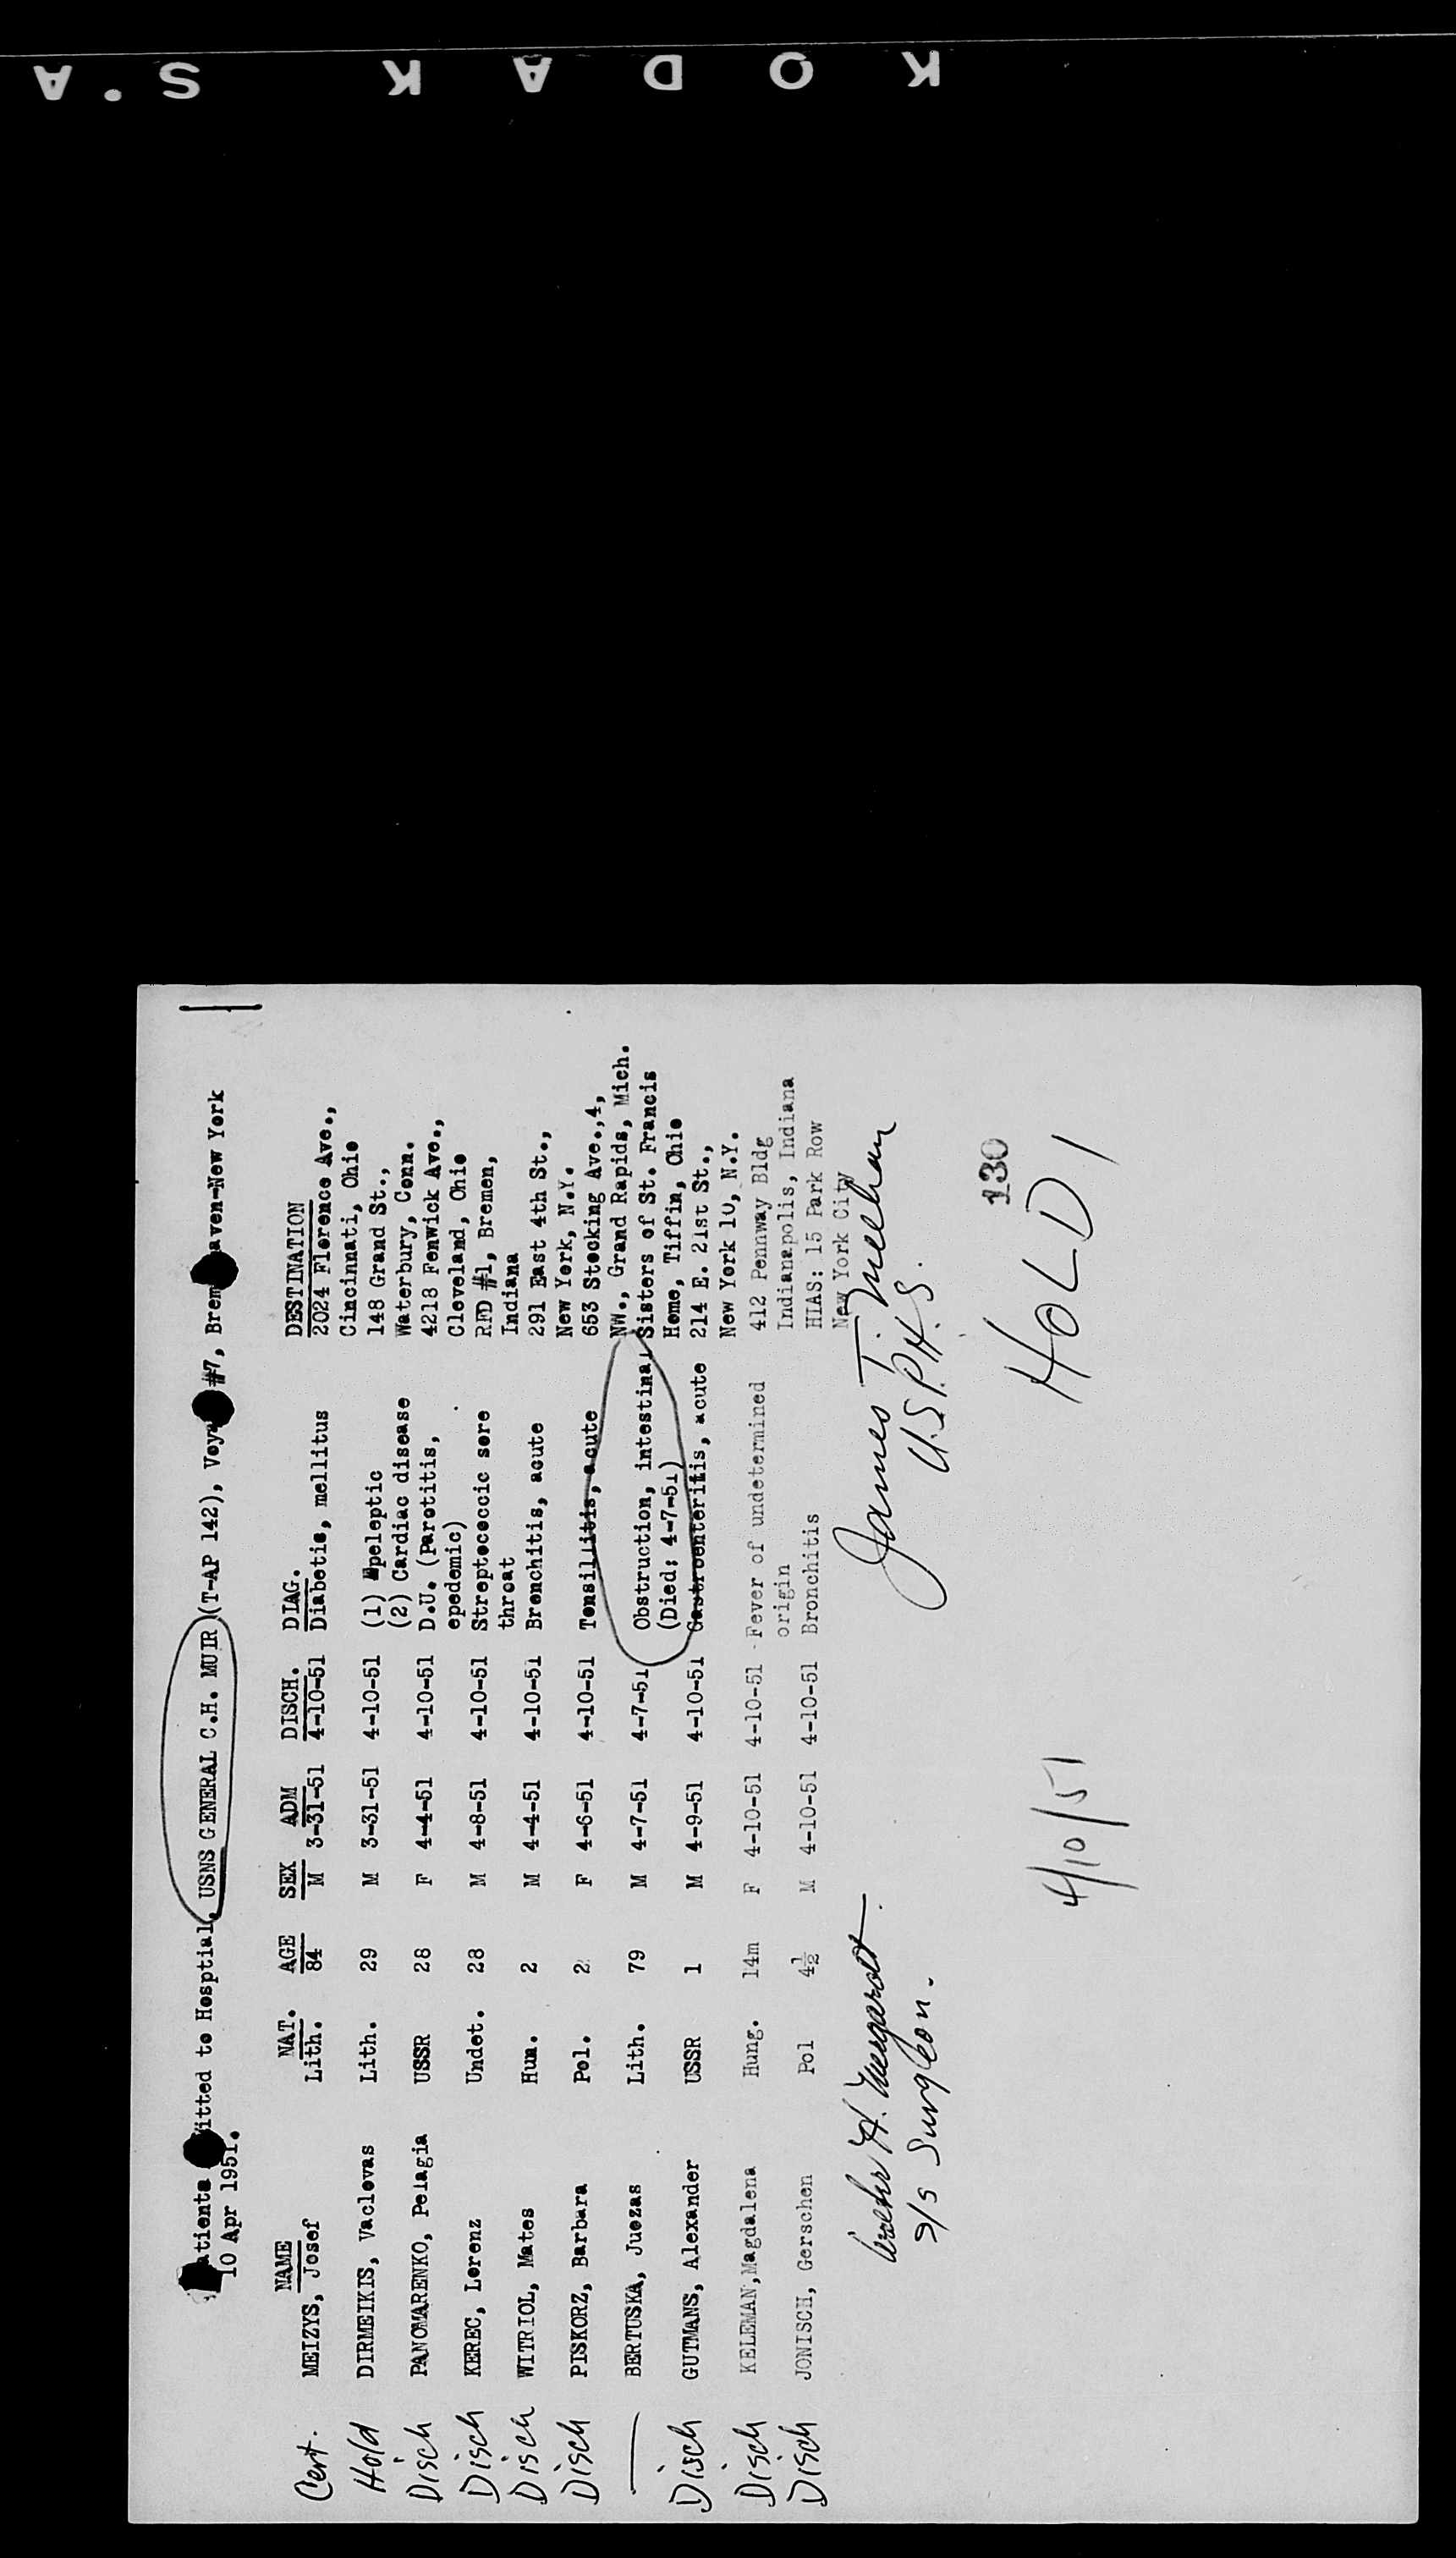 K O D A K S . A
atients itted to Hosptial, USNS GENERAL C.H. MUIR (T-AP 142), Voy #7, Brem aven-New York
10 Apr 1951.
NAME NAT. AGE SEX ADM DISCH. DIAG. DESTINATION
Cert. MEIZYS, Josef Lith. 84 M 3-31-51 4-10-51 Diabetis, mellitus 2024 Florence Ave.,
Cincinnati, Ohio
Hold DIRMEIKIS, Vaclovas Lith. 29 M 3-31-51 4-10-51 (1) Epeleptic 148 Grand St.,
(2) Cardiac disease Waterbury, Conn.
Disch PANOMARENKO, Pelagia USSR 28 F 4-4-51 4-10-51 D.U. (Parotitis, 4218 Fenwick Ave.,
epedemic) Cleveland, Ohio
Disch KEREC, Lorenz Undet. 28 M 4-8-51 4-10-51 Streptococcic sore RFD #1, Bremen,
throat Indiana
Disch WITRIOL, Mates Hun. 2 M 4-4-51 4-10-51 Bronchitis, acute 291 East 4th St.,
New York, N.Y.
Disch PISKORZ, Barbara Pol. 2 F 4-6-51 4-10-51 Tonsillitis, acute 653 Stocking Ave.,4,
NW., Grand Rapids, Mich.
— BERTUSKA, Juozas Lith. 79 M 4-7-51 4-7-51 Obstruction, intestinal Sisters of St. Francis
(Died: 4-7-51) Home, Tiffin, Ohio
Disch GUTMANS, Alexander USSR 1 M 4-9-51 4-10-51 Gastroenteritis, acute 214 E. 21st St.,
New York 10, N.Y.
Disch KELEMAN,Magdalena Hung. 14m F 4-10-51 4-10-51 - Fever of undetermined 412 Pennway Bldg
origin Indianapolis, Indiana
Disch JONISCH, Gerschen Pol 4½ M 4-10-51 4-10-51 Bronchitis HIAS: 15 Park Row
New York City
H. James T. Meehan
Surgeon. U.S.P.H.S.
130
4/10/51 HOLD 1